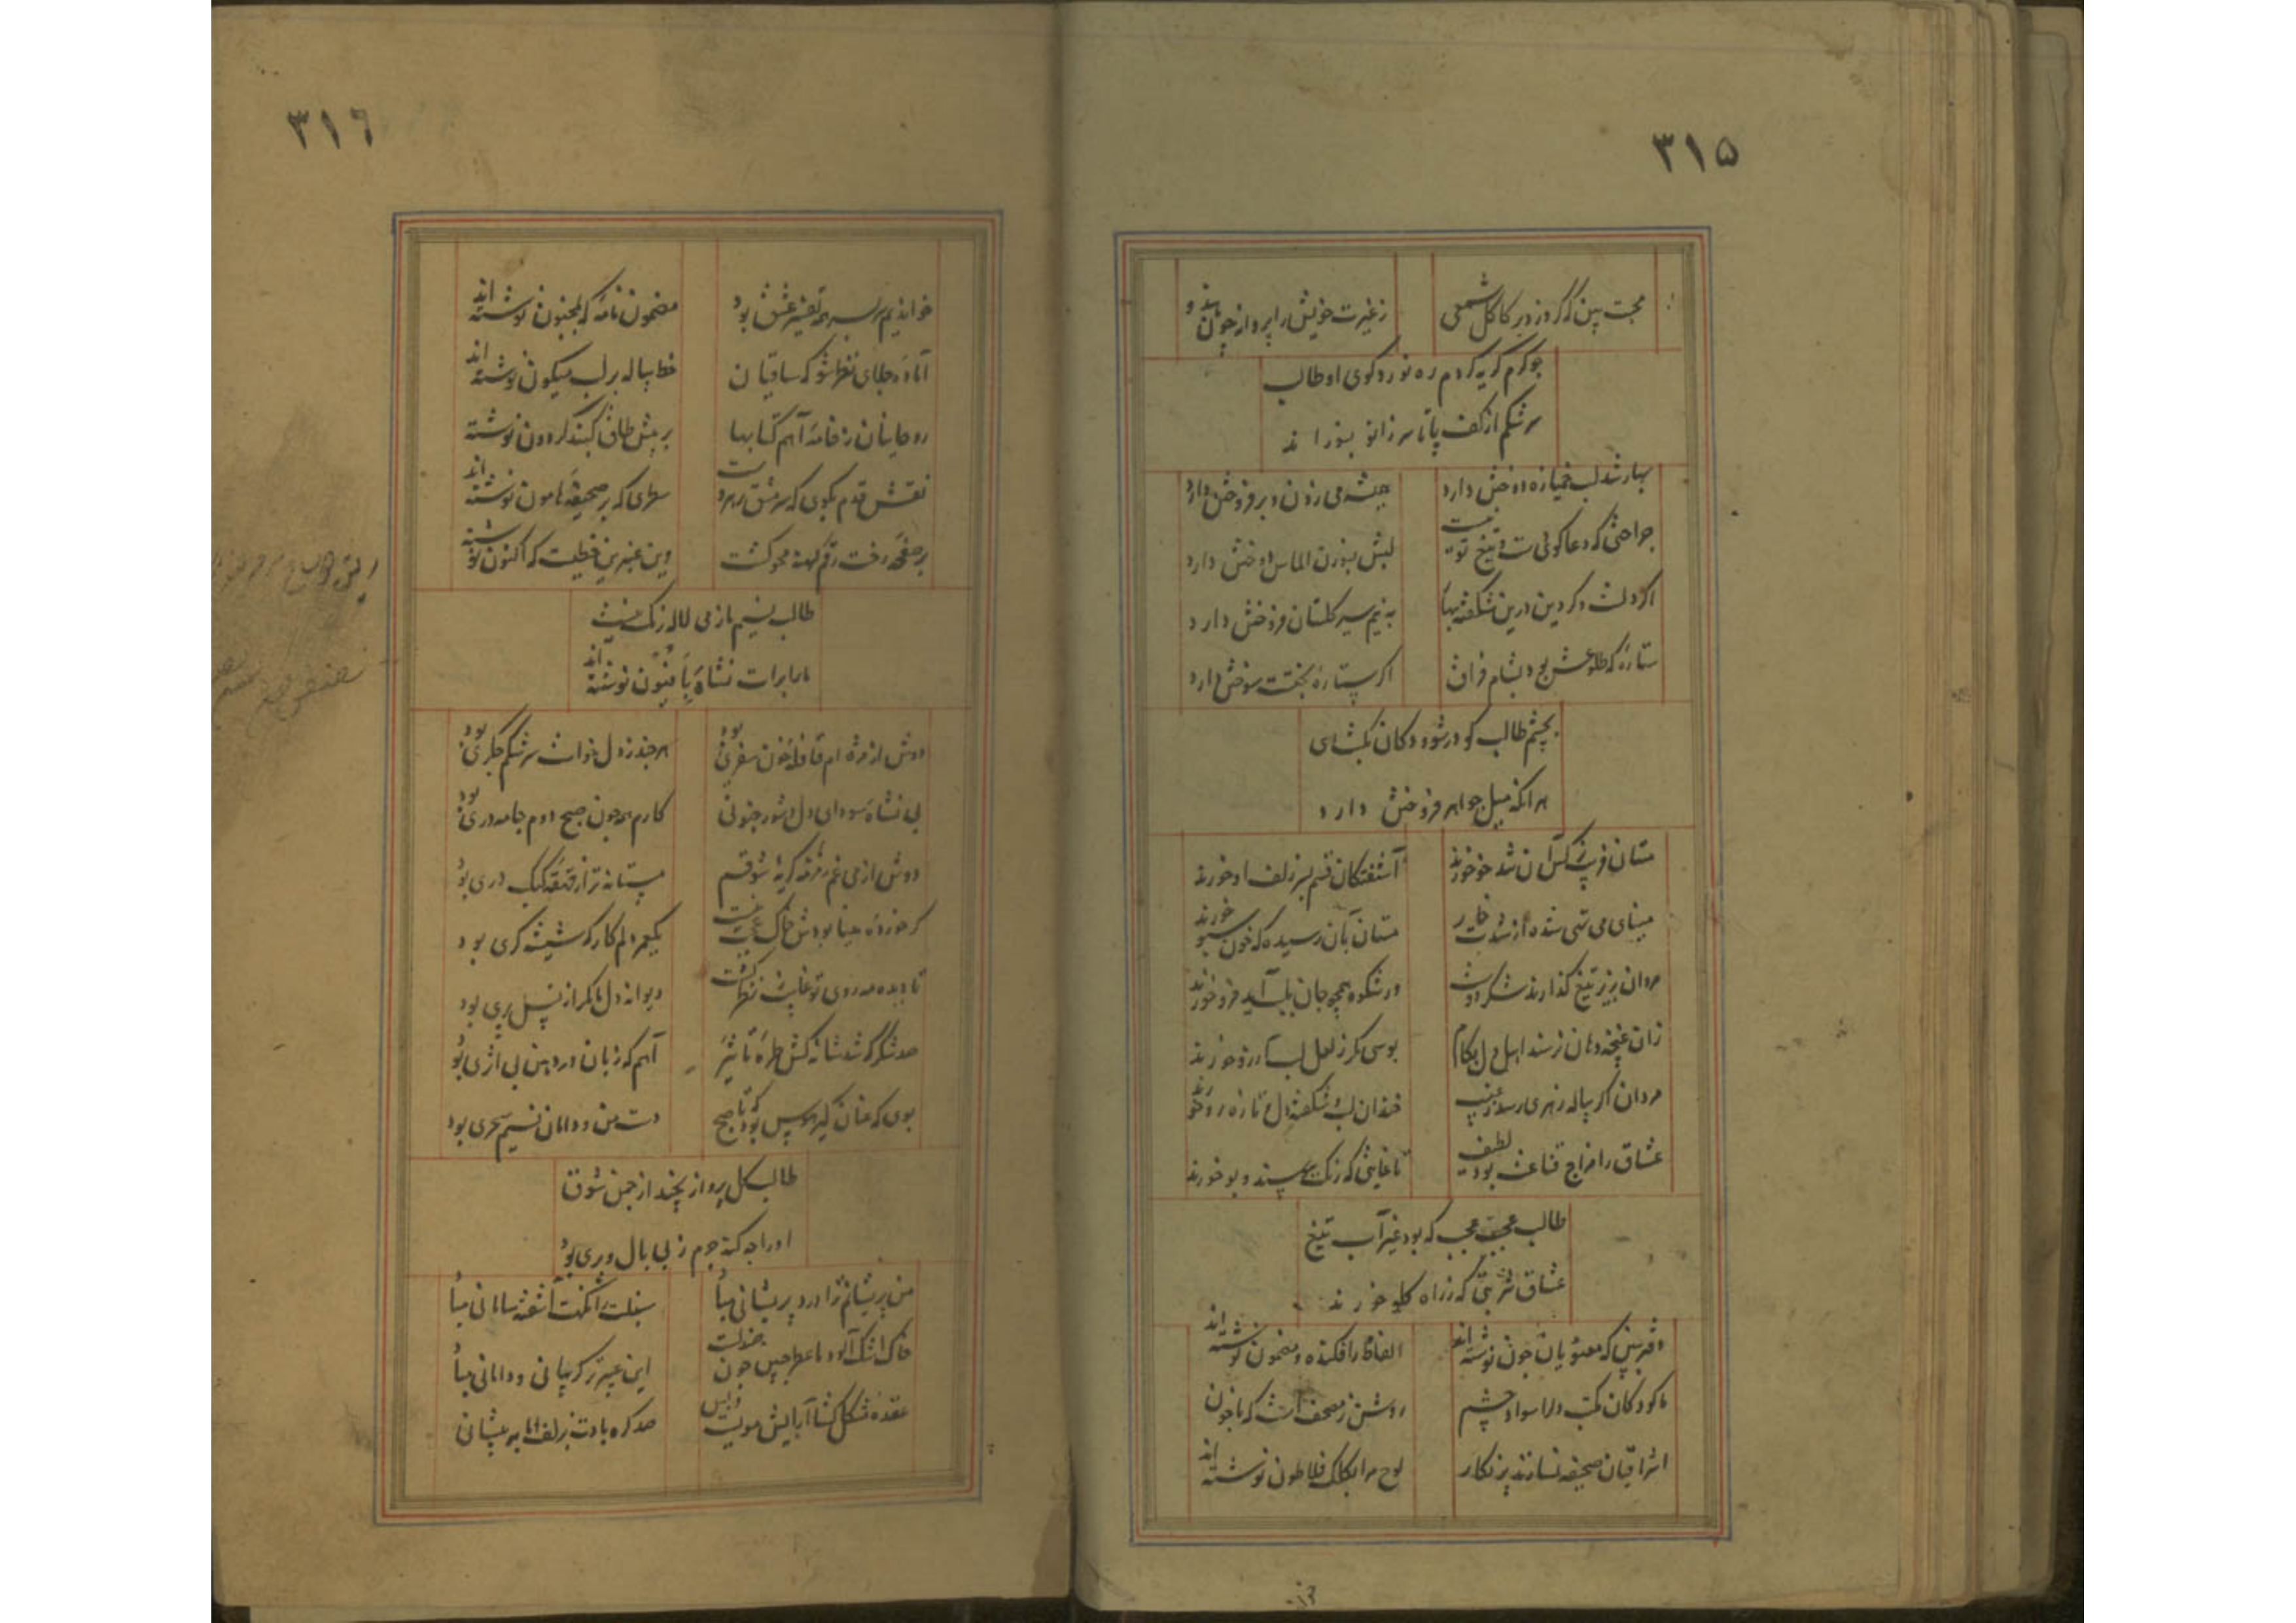 ۳۱۵
محبت بین که گر دزدم بر کاکل شمعی
ز غیرت خویش را پروانه چون
چو گرم گریه گردم ره نورد کوی او طالب
سرشکم از کف پا تا سر زانو بسوزاند
بهار شد لب خمیازه دوختن دارد
می زدن و بر فروختن دارد
جراحتی که دعا گوی تیغ تو نیست
لبش بسوزن الماس دوختن دارد
اگر دلست و گر دین درین شکفته بهار
به نیم سیر گلستان فروختن دارد
ستاره که طلوعش بود بشام فراق
اگر ستاره بختست سوختن دارد
بچشم طالب کو در شو و دکان بگشای
هر آنکه میل جواهر فروختن دارد
مستان فریب
آشفتگان قسم بسر زلف او خورند
مینای می تهی شده از شدت خمار
مستان بآن رسیده که خون سبو خورند
مردان بزیر تیغ گذارند شکر دوست
ور شکوه همچو جان بلب آید فرو خورند
زان غنچه دهان نرسند اهل دل بکام
بوسی مگر ز لعل لب آرزو خورند
مردان اگر پیاله زهری رسد ز غیب
خندان لب و شکفته دل و تازه رو خورند
عشاق را مزاج قناعت بود لطیف
تا غایتی که رنگ ببینند و بو خورند
طالب عجب عجب که بود غیر آب تیغ
عشاق شربتی که ز راه گلو خورند
دفتر ببین که معنویان چون نوشته‌اند
الفاظ را فکنده و مضمون نوشته‌اند
ما کودکان مکتب و ما را سواد چشم
روشن ز مصحفیست که با خون
اشراقیان صحیفه نسازند پر نگار
لوح مرا بکلک فلاطون نوشته‌اند
۳۱۶
خواندیم سر بسر همه تفسیر عشق بود
مضمون نامه که بمجنون نوشته‌اند
آماده جلای نظر شو که ساقیان
خط پیاله بر لب میگون نوشته‌اند
روحانیان ز خامه آهم کتابها
بر پیش طاق گنبد گردون نوشته
نقش قدم مگوی که سرمشق رهروست
سطری که بر صحیفه هامون نوشته‌اند
بر صفحه رخت رقم کهنه محو گشت
وین عنبرین خطیست که اکنون نوشته
طالب نسیم ما ز می لاله رنگ نیست
ما را برات نشاه بافیون نوشته‌اند
دوش از مژه ام قافله خون سفری بود
هر چند ز دل خواست سرشکم جگری بود
بی نشاه سودای دل و شور جنونی
کارم همه چون صبح دوم جامه دری بود
دوش از می غم زمزمه گریه شوقم
مستانه تر از قهقهه کبک دری بود
یکعمر دلم کارگه شیشه گری بود
تا دیده مه روی تو غایب ز نظر گشت
دیوانه دل ما مگر از نسل پری بود
صد شکر که شد شانه کش طره تاثیر
آهم که زبان در دهن بی اثری بود
بوی که عنان گیر هوس بود که تا صبح
دست من و دامان نسیم سحری بود
طالب گل پرواز نچیند از چمن شوق
او را چه گنه جرم ز بی بال و پری بود
من پریشانم ترا درد پریشانی مباد
سنبلت را نکهت آشفته سامانی مباد
خاک اشک آلود ما عطر جبین چون
این عبیر تر گریبانی و دامانی مباد
عقده مشکل گشا آرایش مویت
صد گره بادت بزلف اما به پیشانی